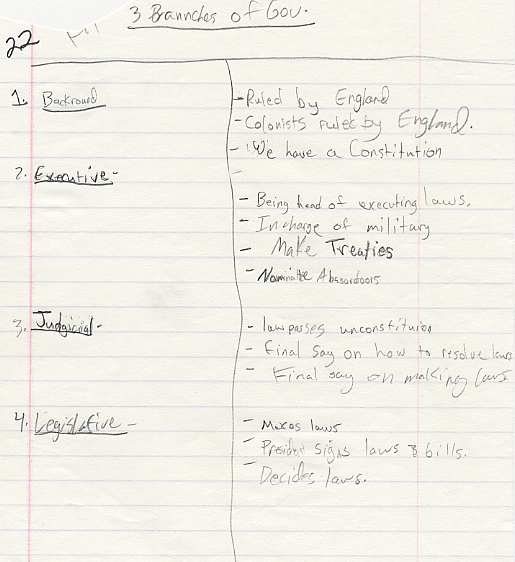 3 Brannches of Gov.
22
1. Backround
- Ruled by England
- Colonists ruled by England.
- We have a Constitution
2. Executive -
- Being head of executing laws.
- In charge of military
- Make Treaties
- Nominate
3. Judgicial -
- law passes unconstituion
- final say on how to resolve laws
- Final say on making laws
4. Legislative -
- Makes laws
- President signs laws & bills.
- Decides laws.